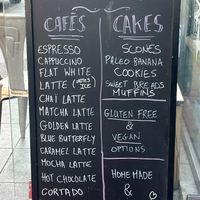 CAFÉS
ESPRESSO
CAPPUCCINO
FLAT WHITE
LATTE
CHAI LATTE
MATCHA LATTE
GOLDEN LATTE
BLUE BUTTERFLY
CARAMEL LATTE
MOCHA LATTE
HOT CHOCOLATE
CORTADO
CAKES
SCONES
PALEO BANANA
COOKIES
SWEET BREADS
MUFFINS
GLUTEN FREE
&
VEGAN
OPTIONS
HOME MADE
&